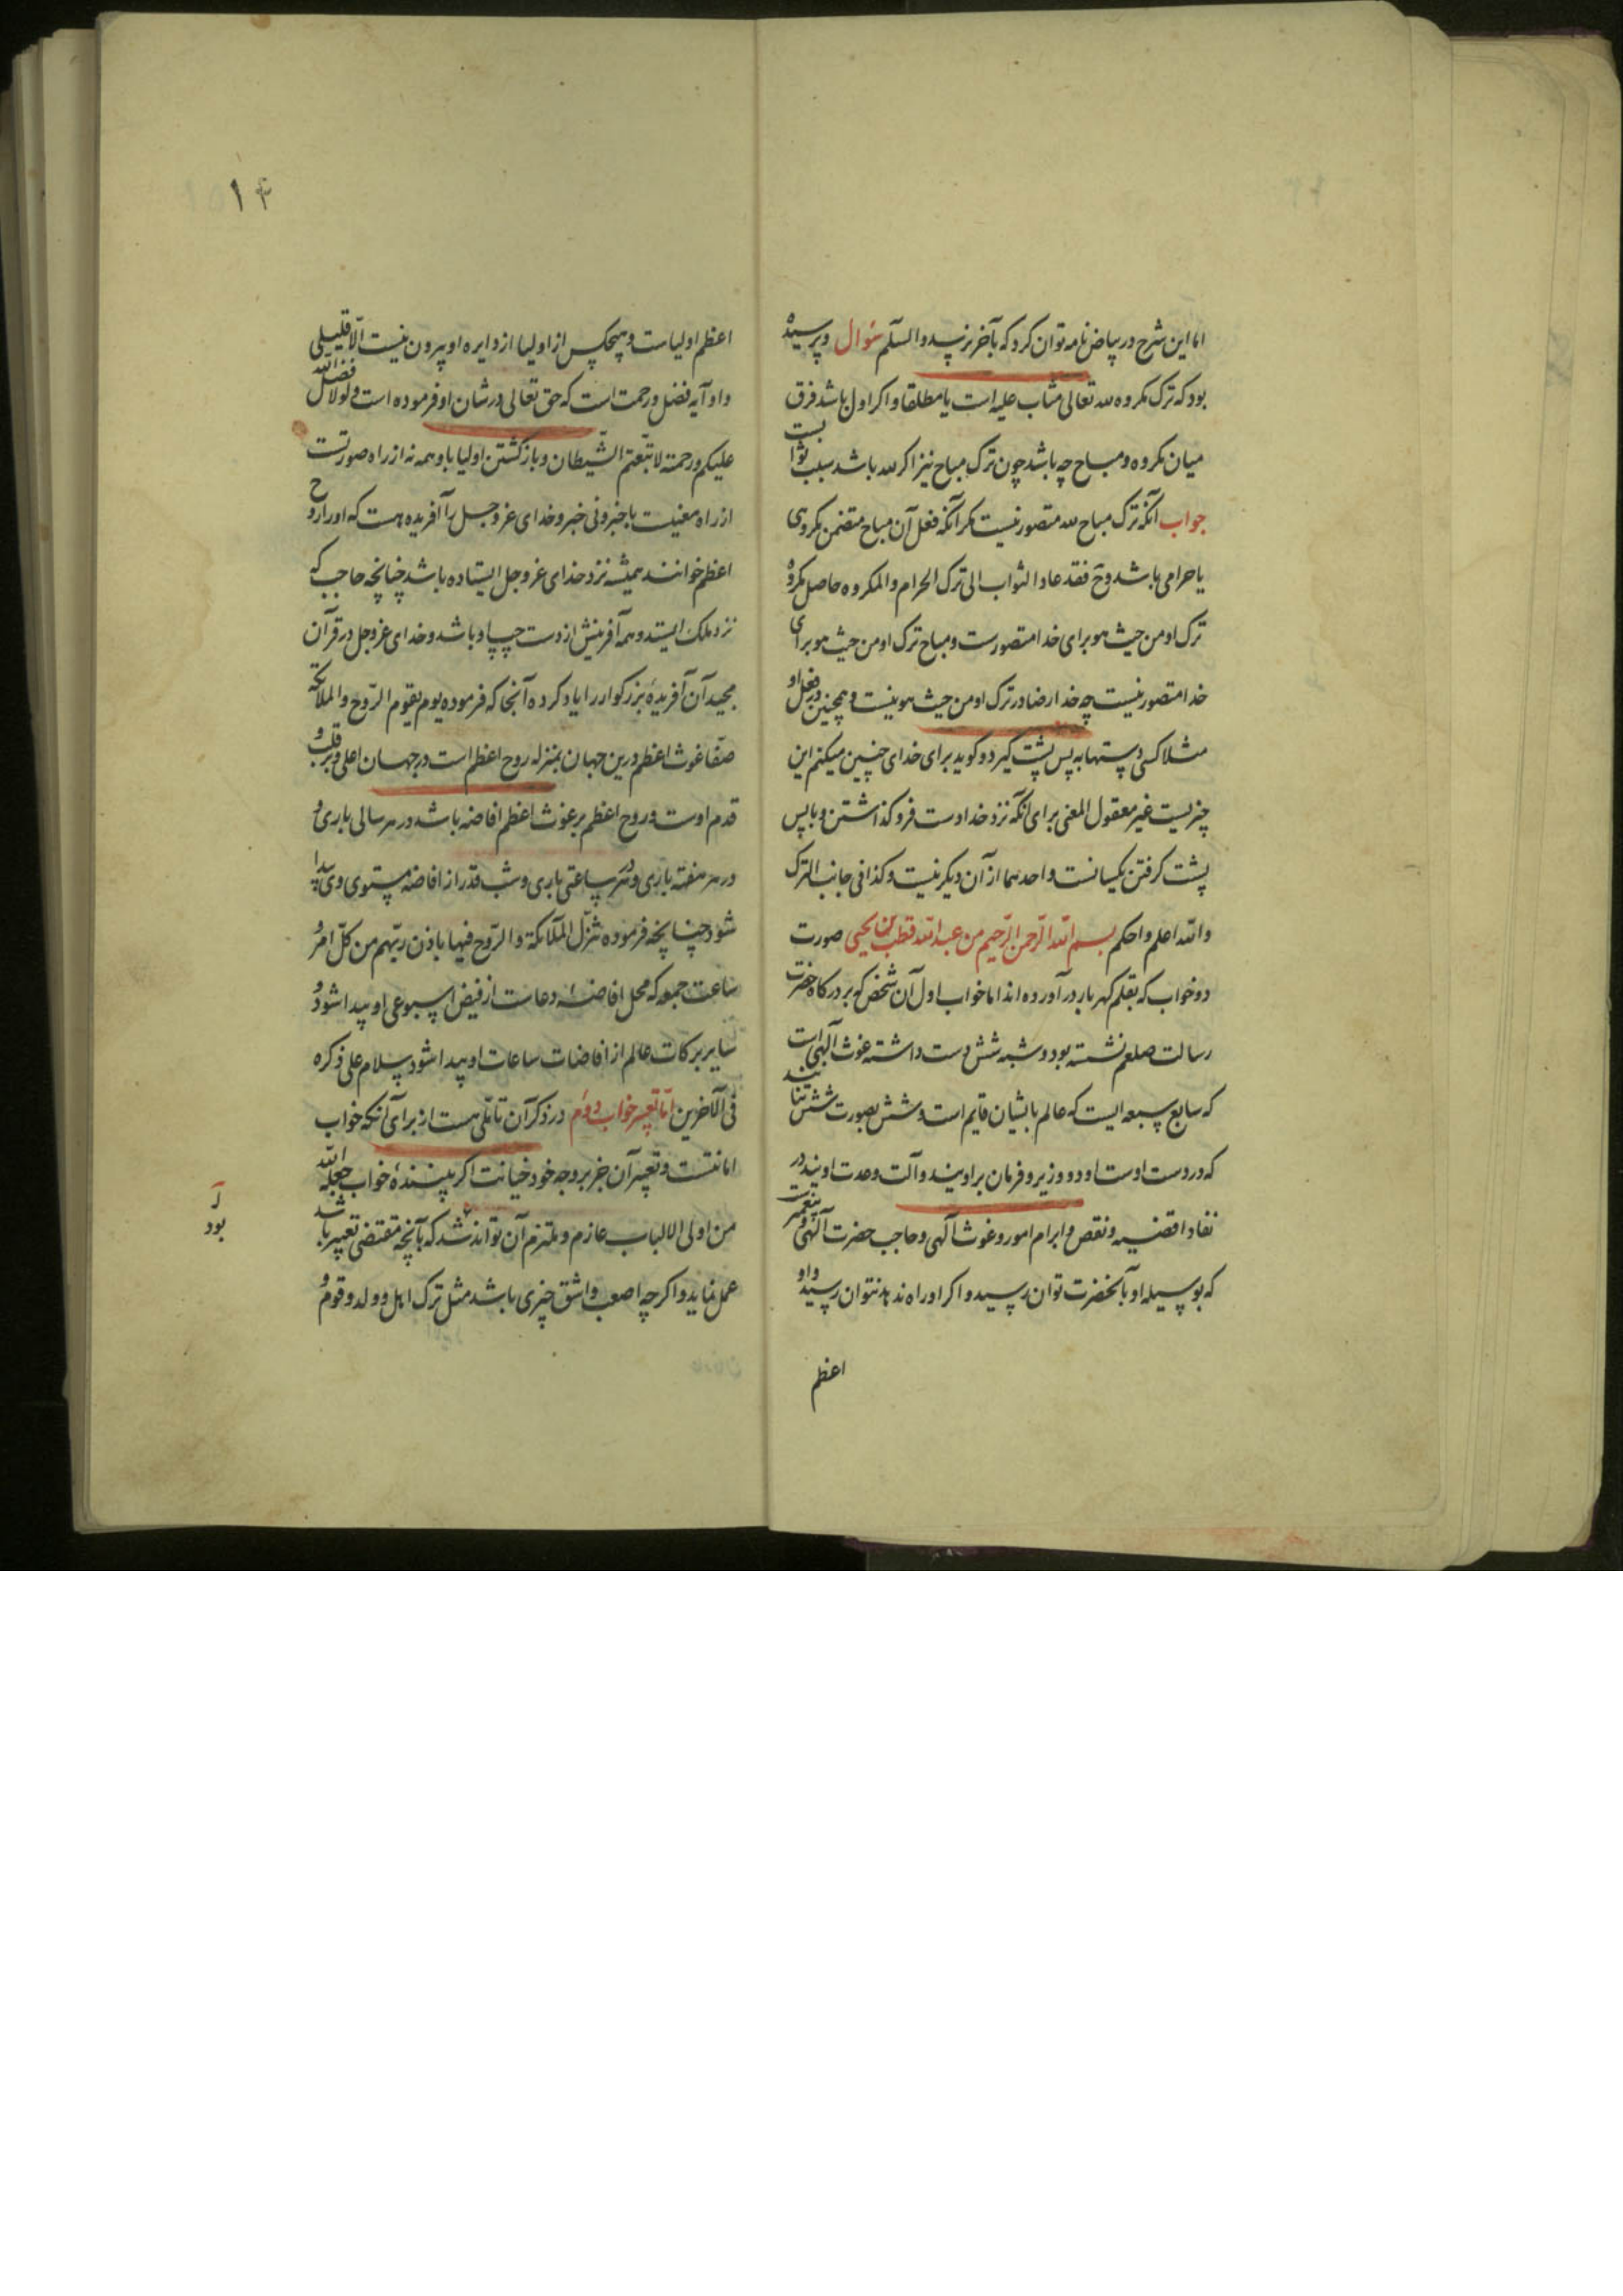 اما این شرح در بیاض نامه توان کرد که بآخر نرسید والسلم سؤال و پرسیده
بود که ترک مکروه لله تعالی مثاب علیه است یا مطلقا و اکر اول باشد فرق
میان مکروه و مباح چه باشد چون ترک مباح نیز اکر لله باشد سبب ثوابست
جواب آنکه ترک مباح لله متصور نیست مکر آنکه فعل آن مباح متضمن مکروهی
یا حرامی باشد وح فقد عاد الثواب الی ترک الحرام والمکروه حاصل مکروه
ترک او من حیث هو برای خدا متصورست و مباح ترک او من حیث هو برای
خدا متصور نیست چه خدا را رضا در ترک او من حیث هو نیست و همچنین در فعل او
مثلا کسی دستها به پس پشت کیرد و کوید برای خدای چنین میکنم این
چیزیست غیر معقول المعنی برای آنکه نزد خدا دست فرو کذاشتن و با پس
پشت کرفتن یکسانست و احدهما از آن دیکر نیست و کذا فی جانب الترک
والله اعلم و احکم بسم الله الرحمن الرحیم من عبدالله قطب بن یحیی صورت
دو خواب که بقلم کهربار در آورده اند اما خواب اول آن شخص که بر درکاه حضرت
رسالت صلعم نشسته بود و شبه شش دست داشته غوث آلهی است
که سابع سبعه ایست که عالم بایشان قایم است و شش بصورت شش تنانند
که در دست اوست او دو وزیر و فرمان براویند و آلت وحدت اویند در
نفاد اقضیه و نقص و ابرام امور و غوث آلهی و حاجب حضرت آلهی و پیغمبرست
که بوسیله او بآنحضرت توان رسید و اکر او راه ندهد نتوان رسید و او
اعظم
۱۴
اعظم اولیاست و هیچکس از اولیا از دایره او بیرون نیست الّا قلیلی
و او آیه فضل و رحمت است که حق تعالی در شان او فرموده است ولولا فضل الله
علیکم و رحمته لاتبعتم الشیطان و بازکشتن اولیا باو همه نه از راه صورتست
از راه معنیست با خبر و بی خبر و خدای عز و جل را آفریده هست که او را روح
اعظم خوانند همیشه نزد خدای عز و جل ایستاده باشد چنانچه حاجب که
نزد ملک ایستد و همه آفرینش از دست چپ او باشد و خدای عز و جل در قرآن
مجید آن آفریدهٔ بزرکوار را یاد کرده آنجا که فرموده یوم یقوم الروح والملائکة
صفّا غوث اعظم درین جهان بمنزله روح اعظم است در جهان اعلی و بر قلب و
قدم اوست و روح اعظم بر غوث اعظم افاضه باشد در هر سالی باری و
در هر هفته باری و در هر ساعتی باری و شب قدر از افاضه سنوی وی پیدا
شود چنانچه فرموده تنزّل الملائکة والروح فیها باذن ربّهم من کلّ امر و
ساعت جمعه که محل افاضه دعاست از فیض اسبوعی او پیدا شود و
سایر برکات عالم از افاضات ساعات او پیدا شود سلام علی ذکره
فی الآخرین امّا تعبیر خواب دوم در ذکر آن تأملی هست از برای آنکه خواب
امانتست و تعبیر آن جز بر وجه خود خیانت اکر بینندهٔ خواب جعله الله
من اولی الالباب عازم و ملتزم آن تواند شد که بآنچه مقتضی تعبیر باشد
عمل نماید و اکرچه اصعب و اشق چیزی باشد مثل ترک اهل و ولد و قوم و
بود